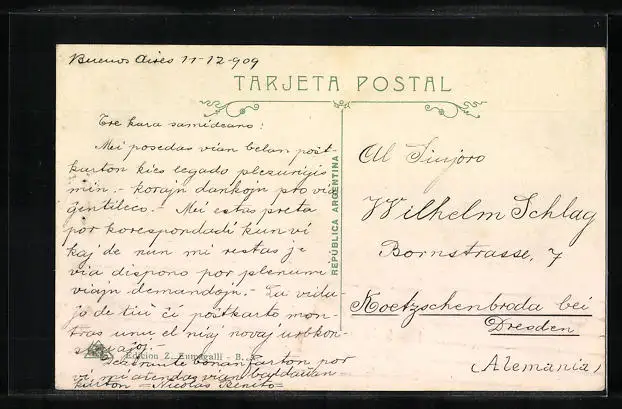 Buenos Aires 11-12-909
TARJETA POSTAL
Tre kara samideano:
Mi posedas vian belan poŝt
karton kies legado plezurigis
min. - korajn dankojn pro via
ĝentileco. - Mi estas preta
por korespondadi kun vi
kaj de nun mi restas je
via dispono por plenumi
viajn demandojn. - La vida-
jo de tiu ĉi poŝtkarto mon-
tras unu el niaj novaj urbkon-
Dezirante bonan farton por
vi mi atendas vian baldaŭan
Nicolás Benito=
Edicion Z. Fumagalli - B.
REPÚBLICA ARGENTINA
Al Sinjoro
Wilhelm Schlag
Bornstrasse, 7
Koetzschenbroda bei
Dresden
(Alemania)